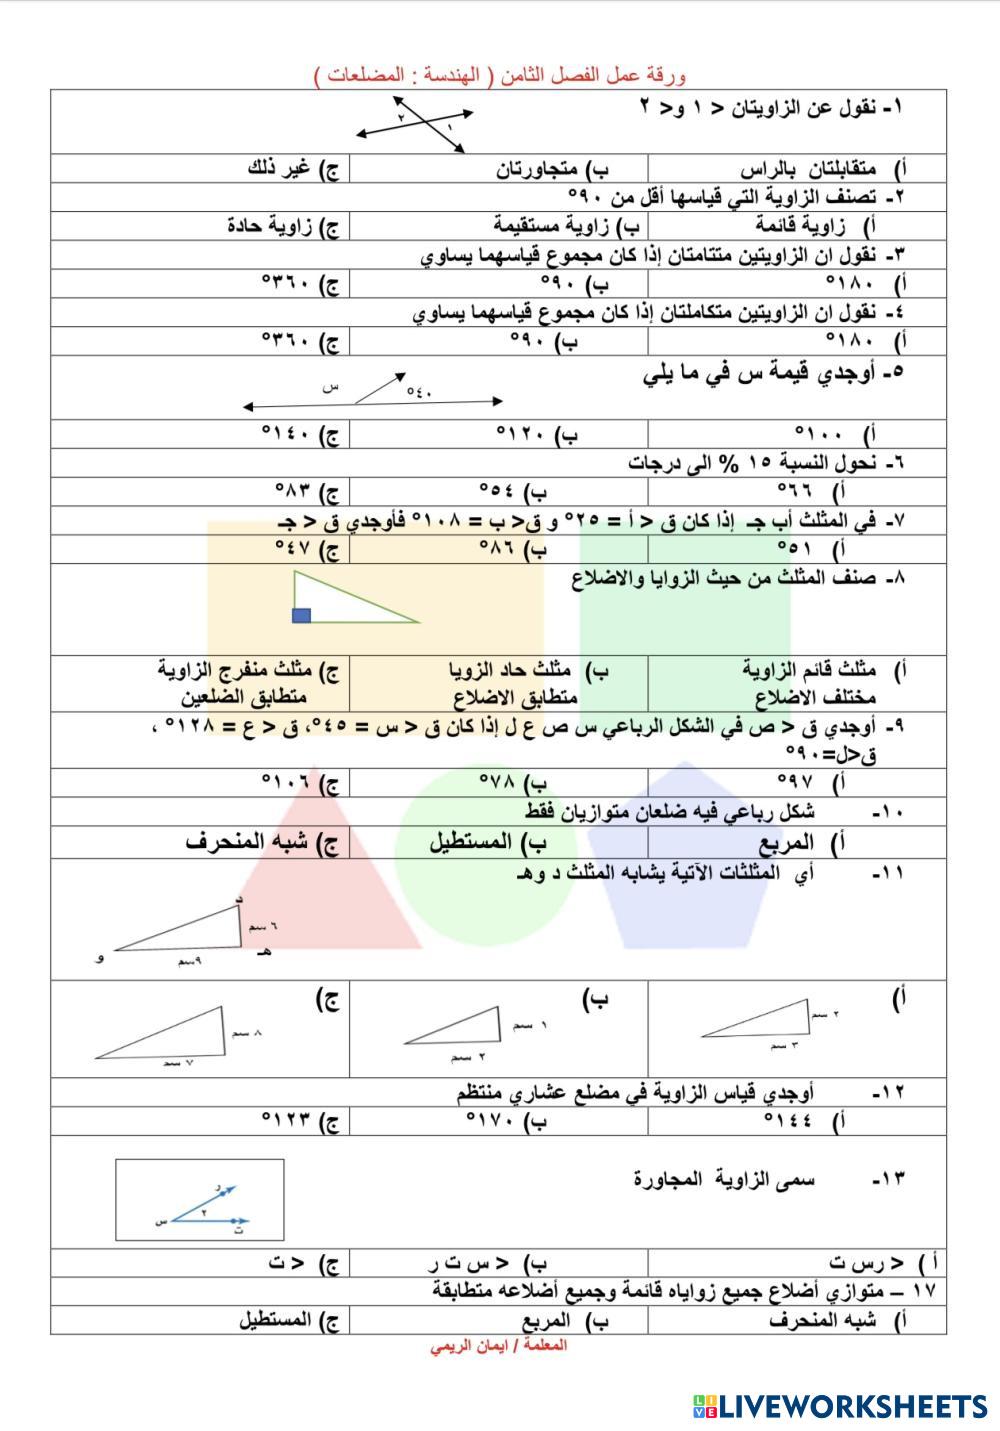 ورقة عمل الفصل الثامن ( الهندسة : المضلعات )
١- نقول عن الزاويتان < ١ و< ٢
٢
١
أ) متقابلتان بالراس ب) متجاورتان ج) غير ذلك
٢- تصنف الزاوية التي قياسها أقل من ٩٠°
أ) زاوية قائمة ب) زاوية مستقيمة ج) زاوية حادة
٣- نقول ان الزاويتين متتامتان إذا كان مجموع قياسهما يساوي
أ) ١٨٠° ب) ٩٠° ج) ٣٦٠°
٤- نقول ان الزاويتين متكاملتان إذا كان مجموع قياسهما يساوي
أ) ١٨٠° ب) ٩٠° ج) ٣٦٠°
٥- أوجدي قيمة س في ما يلي
٤٠° س
أ) ١٠٠° ب) ١٢٠° ج) ١٤٠°
٦- نحول النسبة ١٥ % الى درجات
أ) ٦٦° ب) ٥٤° ج) ٨٣°
٧- في المثلث أب جـ إذا كان ق < أ = ٢٥° و ق< ب = ١٠٨° فأوجدي ق < جـ
أ) ٥١° ب) ٨٦° ج) ٤٧°
٨- صنف المثلث من حيث الزوايا والاضلاع
أ) مثلث قائم الزاوية ب) مثلث حاد الزويا ج) مثلث منفرج الزاوية
مختلف الاضلاع متطابق الاضلاع متطابق الضلعين
٩- أوجدي ق < ص في الشكل الرباعي س ص ع ل إذا كان ق < س = ٤٥°، ق < ع = ١٢٨° ،
ق<ل=٩٠°
أ) ٩٧° ب) ٧٨° ج) ١٠٦°
١٠- شكل رباعي فيه ضلعان متوازيان فقط
أ) المربع ب) المستطيل ج) شبه المنحرف
١١- أي المثلثات الآتية يشابه المثلث د وهـ
د
٦ سم
هـ
و
٩سم
أ) ب) ج)
٢ سم ١ سم ٨ سم
٣ سم ٢ سم ٧ سم
١٢- أوجدي قياس الزاوية في مضلع عشاري منتظم
أ) ١٤٤° ب) ١٧٠° ج) ١٢٣°
١٣- سمى الزاوية المجاورة
ر
٢
س
ت
أ ) < رس ت ب) < س ت ر ج) < ت
١٧ – متوازي أضلاع جميع زواياه قائمة وجميع أضلاعه متطابقة
أ) شبه المنحرف ب) المربع ج) المستطيل
المعلمة / ايمان الريمي
LIVE LIVEWORKSHEETS